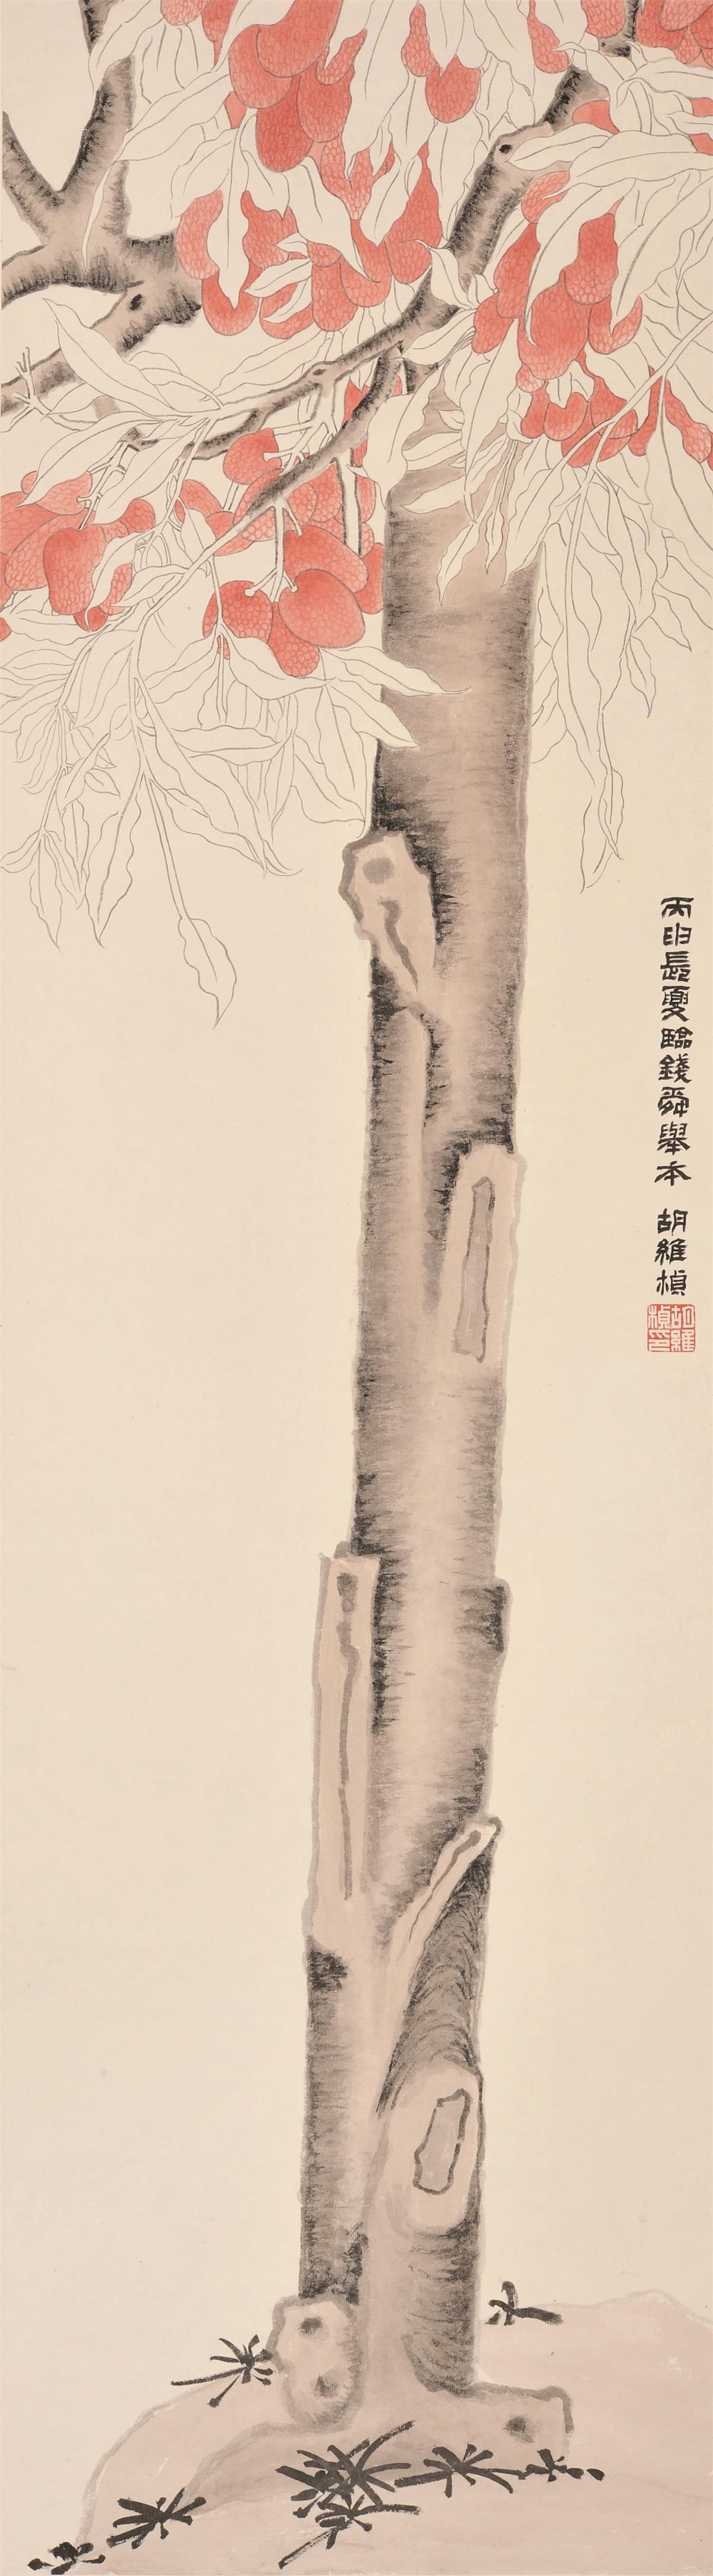 丙申長夏臨錢舜舉本 胡維楨
胡維楨印